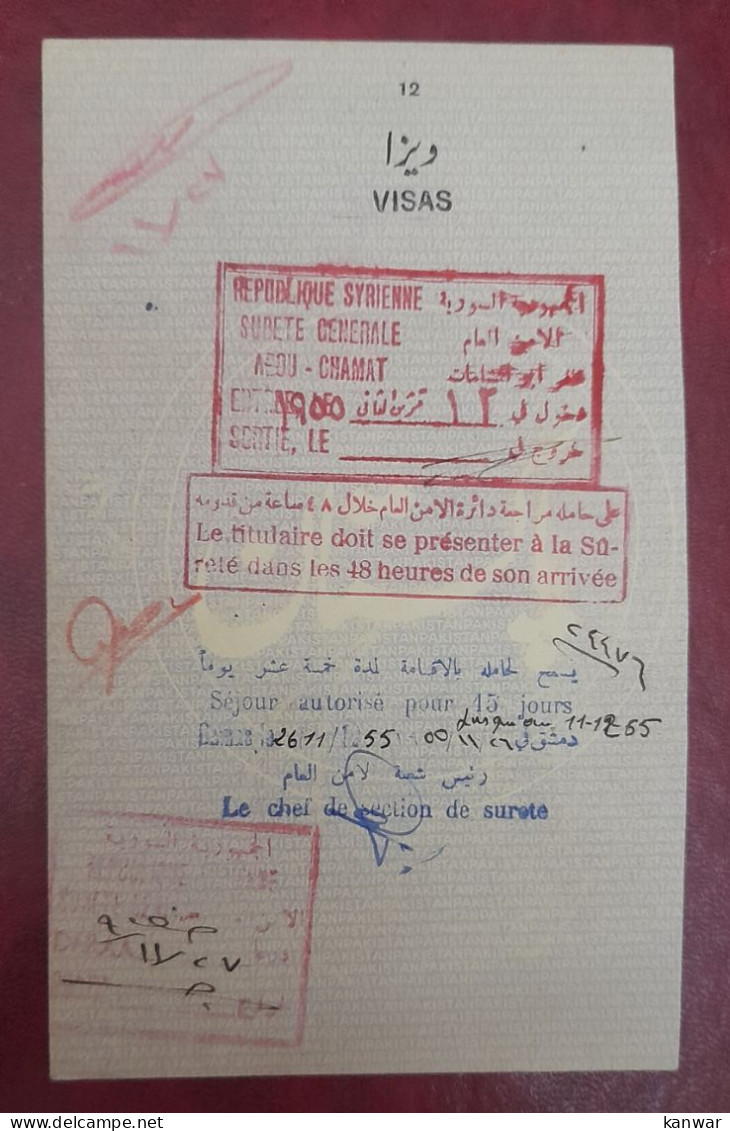 12
ویزا
VISAS
٢٧
١١
REPUBLIQUE SYRIENNE الجمهورية السورية
SURETE GENERALE الامن العام
ABOU - CHAMAT مخفر ابو الشامات
ENTREE, LE ١٩٥٥ تشرين الثاني ١٢ دخول في
SORTIE, LE خروج في
على حامله مراجعة دائرة الامن العام خلال ٤٨ ساعة من قدومه
Le titulaire doit se présenter à la Sû-
reté dans les 48 heures de son arrivée
يسمح لحامله بالاقامة لمدة خمسة عشر يوماً
Séjour autorisé pour 15 jours
Jusqu'au 11-12 55
26 11/ 55 دمشق في ٢٦/١١/٥٥
رئيس شعبة الامن العام
Le chef de section de surete
الجمهورية السورية
٢٧/١١
kanwar